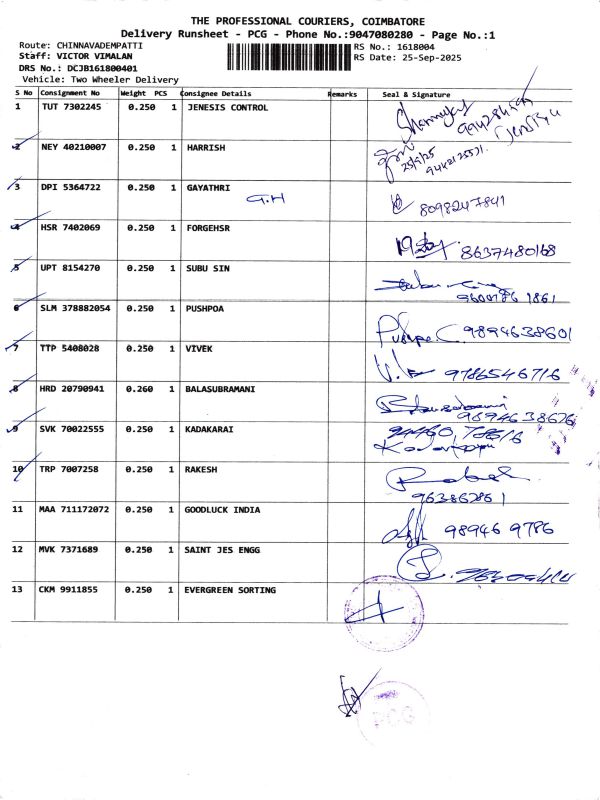 THE PROFESSIONAL COURIERS, COIMBATORE
Delivery Runsheet - PCG - Phone No.:9047080280 - Page No.:1
Route: CHINNAVADEMPATTI RS No.: 1618004
Staff: VICTOR VIMALAN RS Date: 25-Sep-2025
DRS No.: DCJB161800401
Vehicle: Two Wheeler Delivery
S No Consignment No Weight PCS Consignee Details Remarks Seal & Signature
1 TUT 7302245 0.250 1 JENESIS CONTROL
2 NEY 40210007 0.250 1 HARRISH
25/9/25
9442125521.
3 DPI 5364722 0.250 1 GAYATHRI
G.H 8098247841
4 HSR 7402069 0.250 1 FORGEHSR
8637480168
5 UPT 8154270 0.250 1 SUBU SIN
6 SLM 378882054 0.250 1 PUSHPOA
Pushpa.C. 9894638601
7 TTP 5408028 0.250 1 VIVEK
9786546716
8 HRD 20790941 0.260 1 BALASUBRAMANI
9894638676
9 SVK 70022555 0.250 1 KADAKARAI
10 TRP 7007258 0.250 1 RAKESH
Rakesh
11 MAA 711172072 0.250 1 GOODLUCK INDIA
98946 9786
12 MVK 7371689 0.250 1 SAINT JES ENGG
13 CKM 9911855 0.250 1 EVERGREEN SORTING
PCG